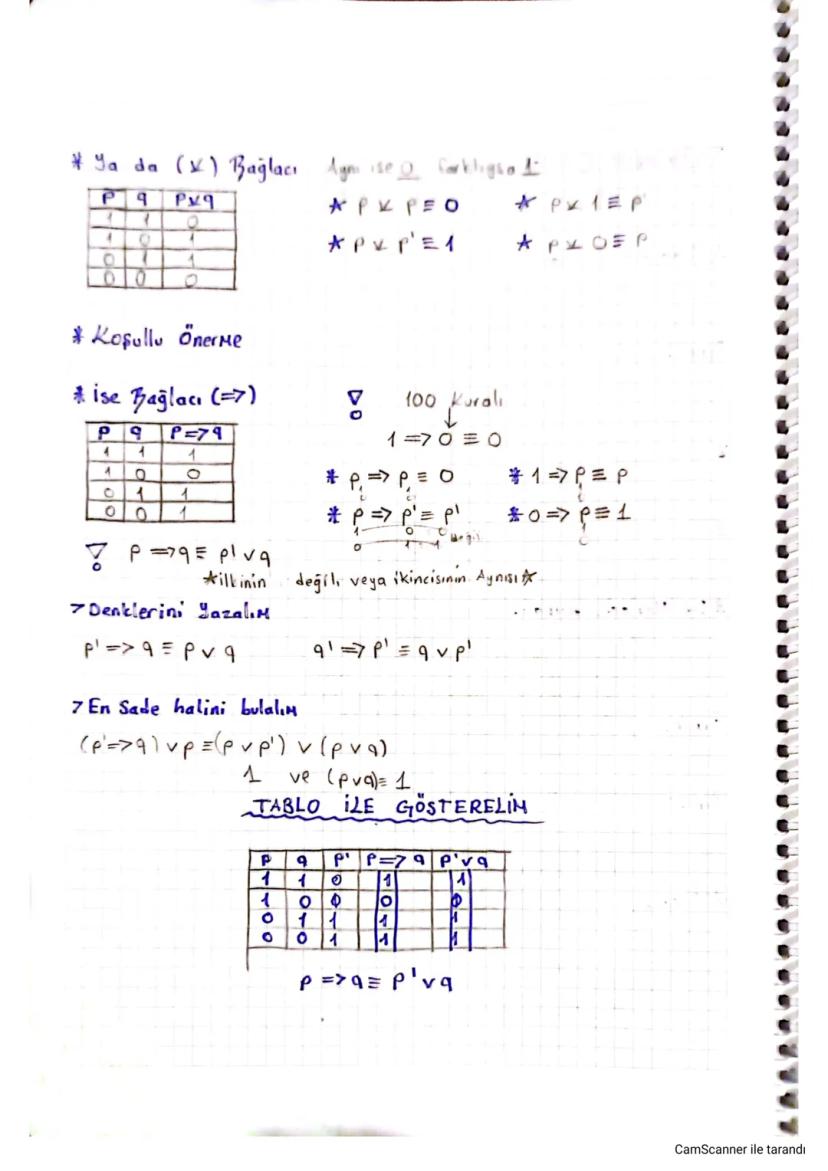 * Ya da (⊻) Bağlacı Aynı ise 0 farklıysa 1
p q p⊻q
1 1 0
1 0 1
0 1 1
0 0 0
★ p ⊻ p ≡ 0 ★ p ⊻ 1 ≡ p'
★ p ⊻ p' ≡ 1 ★ p ⊻ 0 ≡ p
* Koşullu Önerme
* ise Bağlacı (=>)
p q p=>q
1 1 1
1 0 0
0 1 1
0 0 1
100 Kuralı
↓
1 => 0 ≡ 0
* p => p ≡ 0 * 1 => p ≡ p
* p => p' ≡ p' * 0 => p ≡ 1
p => q ≡ p' v q
★ilkinin değili veya ikincisinin Aynısı★
> Denklerini Yazalım
p' => q ≡ p v q q' => p' ≡ q v p'
> En Sade halini bulalım
(p'=>q) v p ≡ (p v p') v (p v q)
1 ve (pvq) ≡ 1
TABLO İLE GÖSTERELİM
p q p' p=>q p'vq
1 1 0 1 1
1 0 0 0 0
0 1 1 1 1
0 0 1 1 1
p => q ≡ p' v q
CamScanner ile tarandı